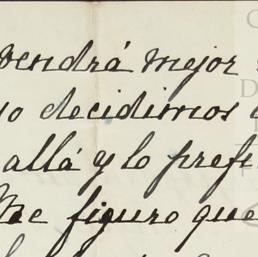 vendrá mejor
decidimos
allá y lo prefe
Me figuro que